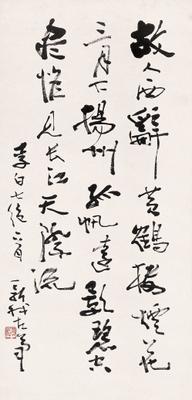 故人西辭黃鶴樓煙花
三月下揚州孤帆遠影碧空
盡惟見长江天際流
李白七絕一首 新我左筆